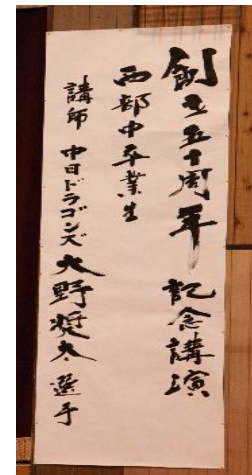 創立五十周年 記念講演
西部中卒業生
講師 中日ドラゴンズ 大野奨太 選手